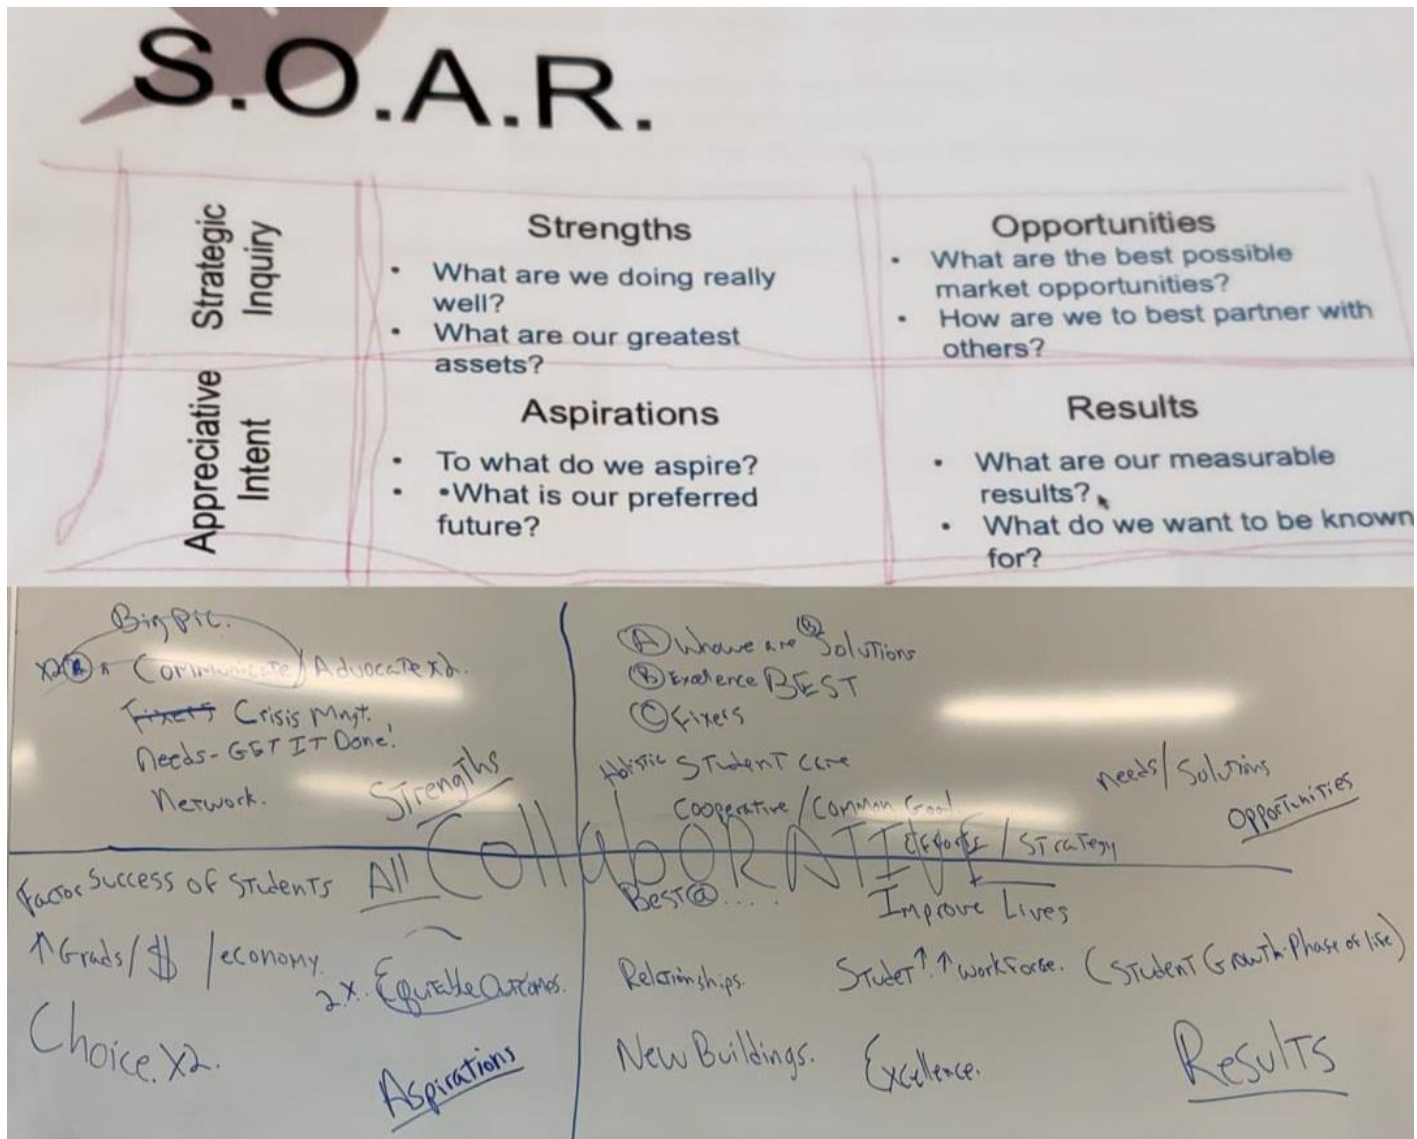 S.O.A.R.
Strategic
Inquiry
Strengths
• What are we doing really
well?
• What are our greatest
assets?
Opportunities
• What are the best possible
market opportunities?
• How are we to best partner with
others?
Appreciative
Intent
Aspirations
• To what do we aspire?
• •What is our preferred
future?
Results
• What are our measurable
results?
• What do we want to be known
for?
Big Pic.
X2 Communicate/Advocate x2.
Fixers Crisis Mngt.
Needs- GET IT Done!
Network.
Strengths
A Who we are B2 Solutions
B BEST
C Fixers
Holistic Student Care
Cooperative/Common Goal
Efforts/Strategy
needs/Solutions
Opportunities
CollabORATIVE
Factor Success of Students All
↑Grads/$ /economy.
2x. Equitable Outcomes.
Choice. X2.
Aspirations
Best@....
Improve Lives
Relationships.
Studet↑.↑workforce. (Student Growth-Phase of life)
New Buildings. Excellence.
Results